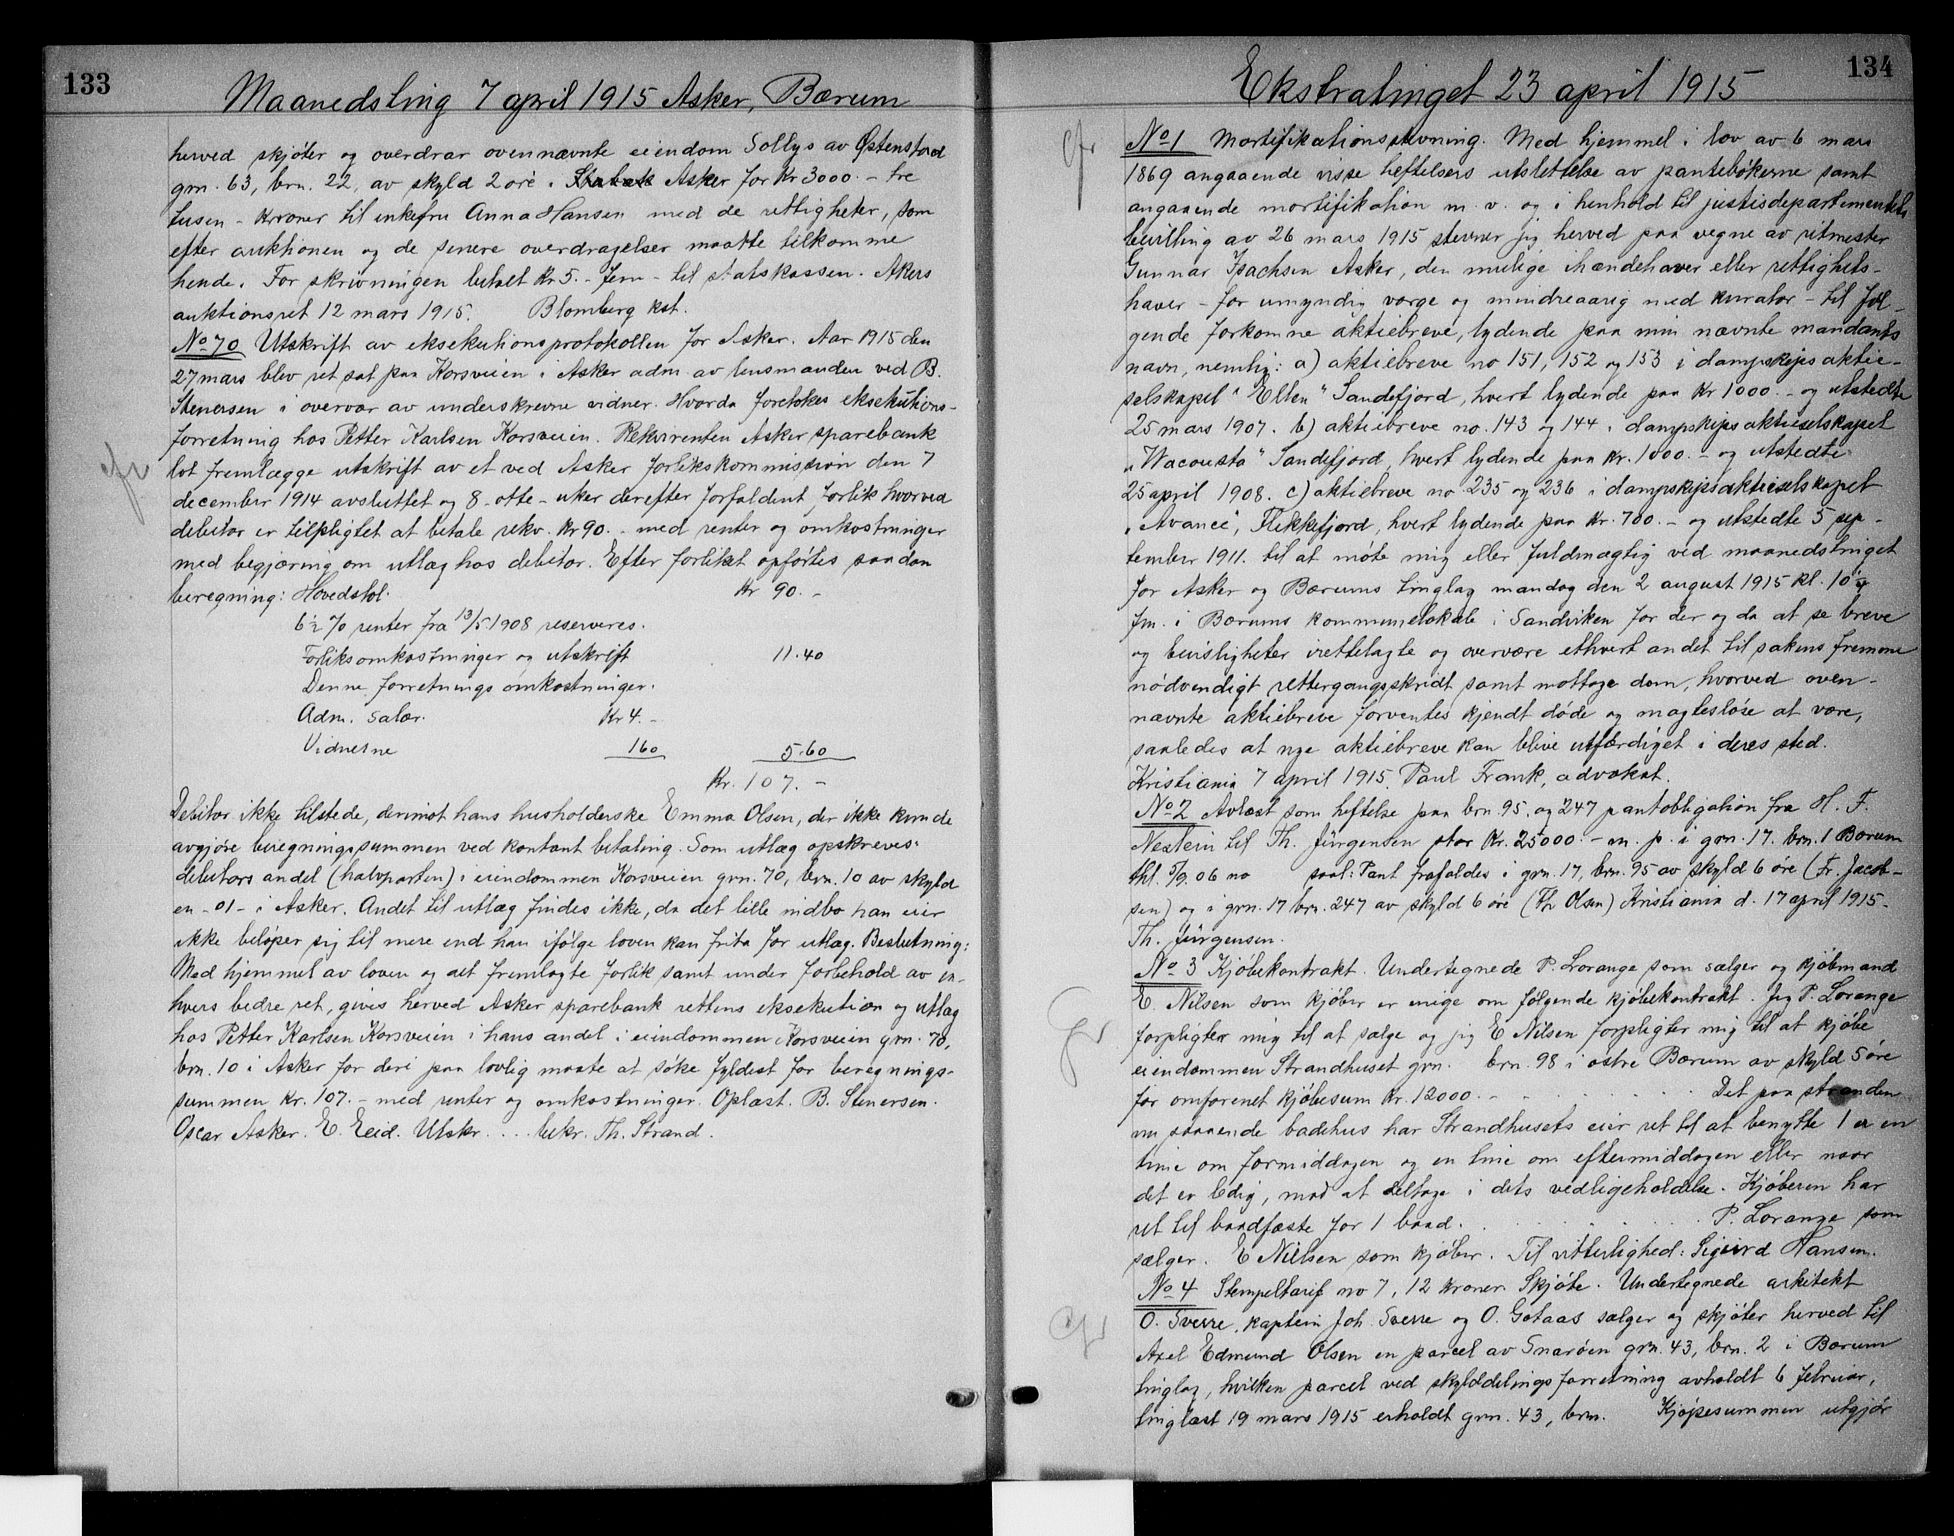 133
Maanedsting 7 april 1915 Asker, Bærum
herved skjøter og overdrar ovennævnte eiendom Sollys av Østenstad
grn. 63, brn. 22, av skyld 2 øre i Asker for Kr 3000.- tre
tusen - Kroner til enkefru Anna Hansen med de rettigheter, som
efter auktionen og de senere overdragelser maatte tilkomme
hende. For skrivningen betalt Kr 5.- fem - til statskassen. Akers
auktionsret 12 mars 1915. Blomberg kst.
No 70 Utskrift av eksekutionsprotokollen for Asker. Aar 1915 den
27 mars blev ret sat paa Korsveien i Asker adm. av lensmanden ved B.
Stenersen i overvær av underskrevne vidner. Hvorda foretokes eksekutions-
forretning hos Petter Karlsen Korsveien. Rekvirenten Asker sparebank
lot fremlægge utskrift av et ved Asker forlikskommission den 7
december 1914 avsluttet og 8 - otte - uker derefter forfaldent forlik hvorved
debitor er tilpligtet at betale rekv. Kr 90.- med renter og omkostninger
med begjæring om utlæg hos debitor. Efter forliket opførtes saadan
beregning: Hovedstol. Kr 90.-
6½ % renter fra 13/5 1908 reserveres.
Forliksomkostninger og utskrift 11.40
Denne forretnings omkostninger.
Adm. salær. Kr 4.-
Vidnerne 1 60 5.60
Kr. 107.-
Debitor ikke tilstede, derimot hans husholderske Emma Olsen, der ikke kunde
avgjøre beregningssummen ved kontant betaling. Som utlæg opskreves:
debitors andel (halvparten) i eiendommen Korsveien grn. 70, brn. 10 av skyld
en - 01 - i Asker. Andet til utlæg findes ikke, da det lille indbo han eier
ikke beløper sig til mere end han ifølge loven kan frita for utlæg. Beslutning:
Med hjemmel av loven og det fremlagte forlik samt under forbehold av en-
hvers bedre ret, gives herved Asker sparebank rettens eksekution og utlæg
hos Petter Karlsen Korsveien i hans andel i eiendommen Korsveien grn. 70,
brn. 10 i Asker for deri paa lovlig maate at søke fyldest for beregnings-
summen Kr. 107.- med renter og omkostninger. Oplæst. B. Stenersen.
Oscar Asker. E. Eeid. Utskr. .... bekr. Th. Strand.
cfr
134
Ekstratinget 23 april 1915
cfr
No 1 Mortifikationsstevning. Med hjemmel i lov av 6 mars
1869 angaaende visse heftelsers utslettelse av pantebøkerne samt
angaaende mortifikation m. v. og i henhold til justisdepartementets
bevilling av 26 mars 1915 stevner jeg herved paa vegne av ritmester
Gunnar Isachsen Asker, den mulige ihændehaver eller rettighets-
haver - for umyndig værge og mindreaarig med kurator - til føl-
gende forkomne aktiebreve, lydende paa min nævnte mandants
navn, nemlig: a) aktiebreve no 151, 152 og 153 i dampskipsaktie-
selskapet "Ellen" Sandefjord, hvert lydende paa Kr 1000.- og utstedte
25 mars 1907. b) aktiebreve no. 143 og 144 i dampskipsaktieselskapet
"Wacousta" Sandefjord, hvert lydende paa Kr. 1000.- og utstedte
25 april 1908. c) aktiebreve no 235 og 236 i dampskipsaktieselskapet
"Avance", Flekkefjord, hvert lydende paa Kr. 700.- og utstedte 5 sep-
tember 1911. til at møte mig eller fuldmægtig ved maanedstinget
for Asker og Bærums tinglag mandag den 2 august 1915 kl. 10½
fm. i Bærums kommunelokale i Sandviken for der og da at se breve
og bevisligheter irettelagte og overvære ethvert andet til sakens fremme
nødvendigt rettergangsskridt samt mottage dom, hvorved oven-
nævnte aktiebreve forventes kjendt døde og magtesløse at være,
saaledes at nye aktiebreve kan blive utfærdiget i deres sted.
Kristiania 7 april 1915. Paul Frank, advokat.
No 2 Avlæst som heftelse paa brn. 95 og 247 pantobligation fra H. F.
til Th. Jürgensen stor Kr. 25000.- m. p. i grn. 17. brn. 1 Bærum
thl. 5/9. 06 no saal: Pant frafaldes i grn. 17, brn. 95 av skyld 6 øre (Fr. Jacob-
sen) og i grn. 17 brn. 247 av skyld 6 øre (Th Olsen) Kristiania d. 17 april 1915.
Th. Jürgensen.
cfr
No 3 Kjøbekontrakt. Undertegnede P. Lorange som sælger og kjøbmand
E. Nilsen som kjøber er enige om følgende kjøbekontrakt. Jeg P. Lorange
forpligter mig til at sælge og jeg E Nilsen forpligter mig til at kjøbe
eiendommen Strandhuset grn. brn. 98 i østre Bærum av skyld 5 øre
for omforenet kjøbesum Kr. 12000.- . . . . . Det paa stranden
nu staaende badehus har Strandhusets eier ret til at benytte 1 en
time om formiddagen og en time om eftermiddagen eller naar
det er ledig, mod at deltage i dets vedligeholdelse. Kjøberen har
ret til baadfæste for 1 baad. . . . . . . . . P. Lorange som
sælger. E Nielsen som kjøber. Til vitterlighed: Sigurd Hansen.
cfr
No 4 Stempeltarif no 7, 12 kroner. Skjøte. Undertegnede arkitekt
O. Sverre, kaptein Joh. Sverre og O. Gotaas sælger og skjøter herved til
Axel Edmund Olsen en parcel av Snarøen grn. 43, brn. 2 i Bærum
tinglag, hvilken parcel ved skylddelingsforretning avholdt 6 februar,
tinglæst 19 mars 1915 erholdt grn. 43, brn. Kjøpesummen utgjør